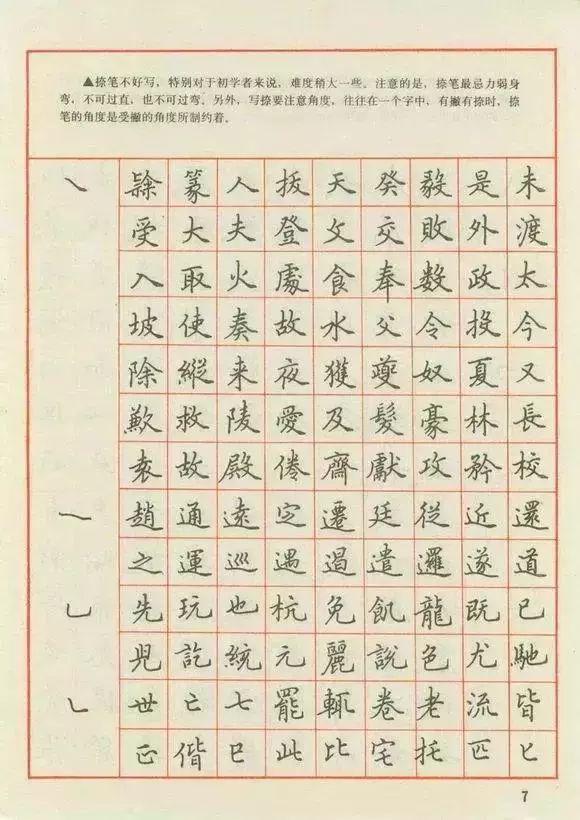 ▲捺笔不好写，特别对于初学者来说，难度稍大一些。注意的是，捺笔最忌力弱身
弯，不可过直，也不可过弯。另外，写捺要注意角度，往往在一个字中，有撇有捺时，捺
笔的角度是受撇的角度所制约着。
篆人拔天癸毅是未
受大夫登攵交敗外渡
入取火處食奉数政太
坡使奏故水父令投今
除縱来夜獲夔奴夏又
歉救陵愛及髮豪林長
袁故殿倦齋獻攻矜校
趙通遠定遷廷從近還
之運巡遇遏遣邏遂道
先玩也杭免飢龍既已
訖統元麗說色尤馳
世亡七罷輒卷老流皆
正偕巳此比宅托匹匕
7